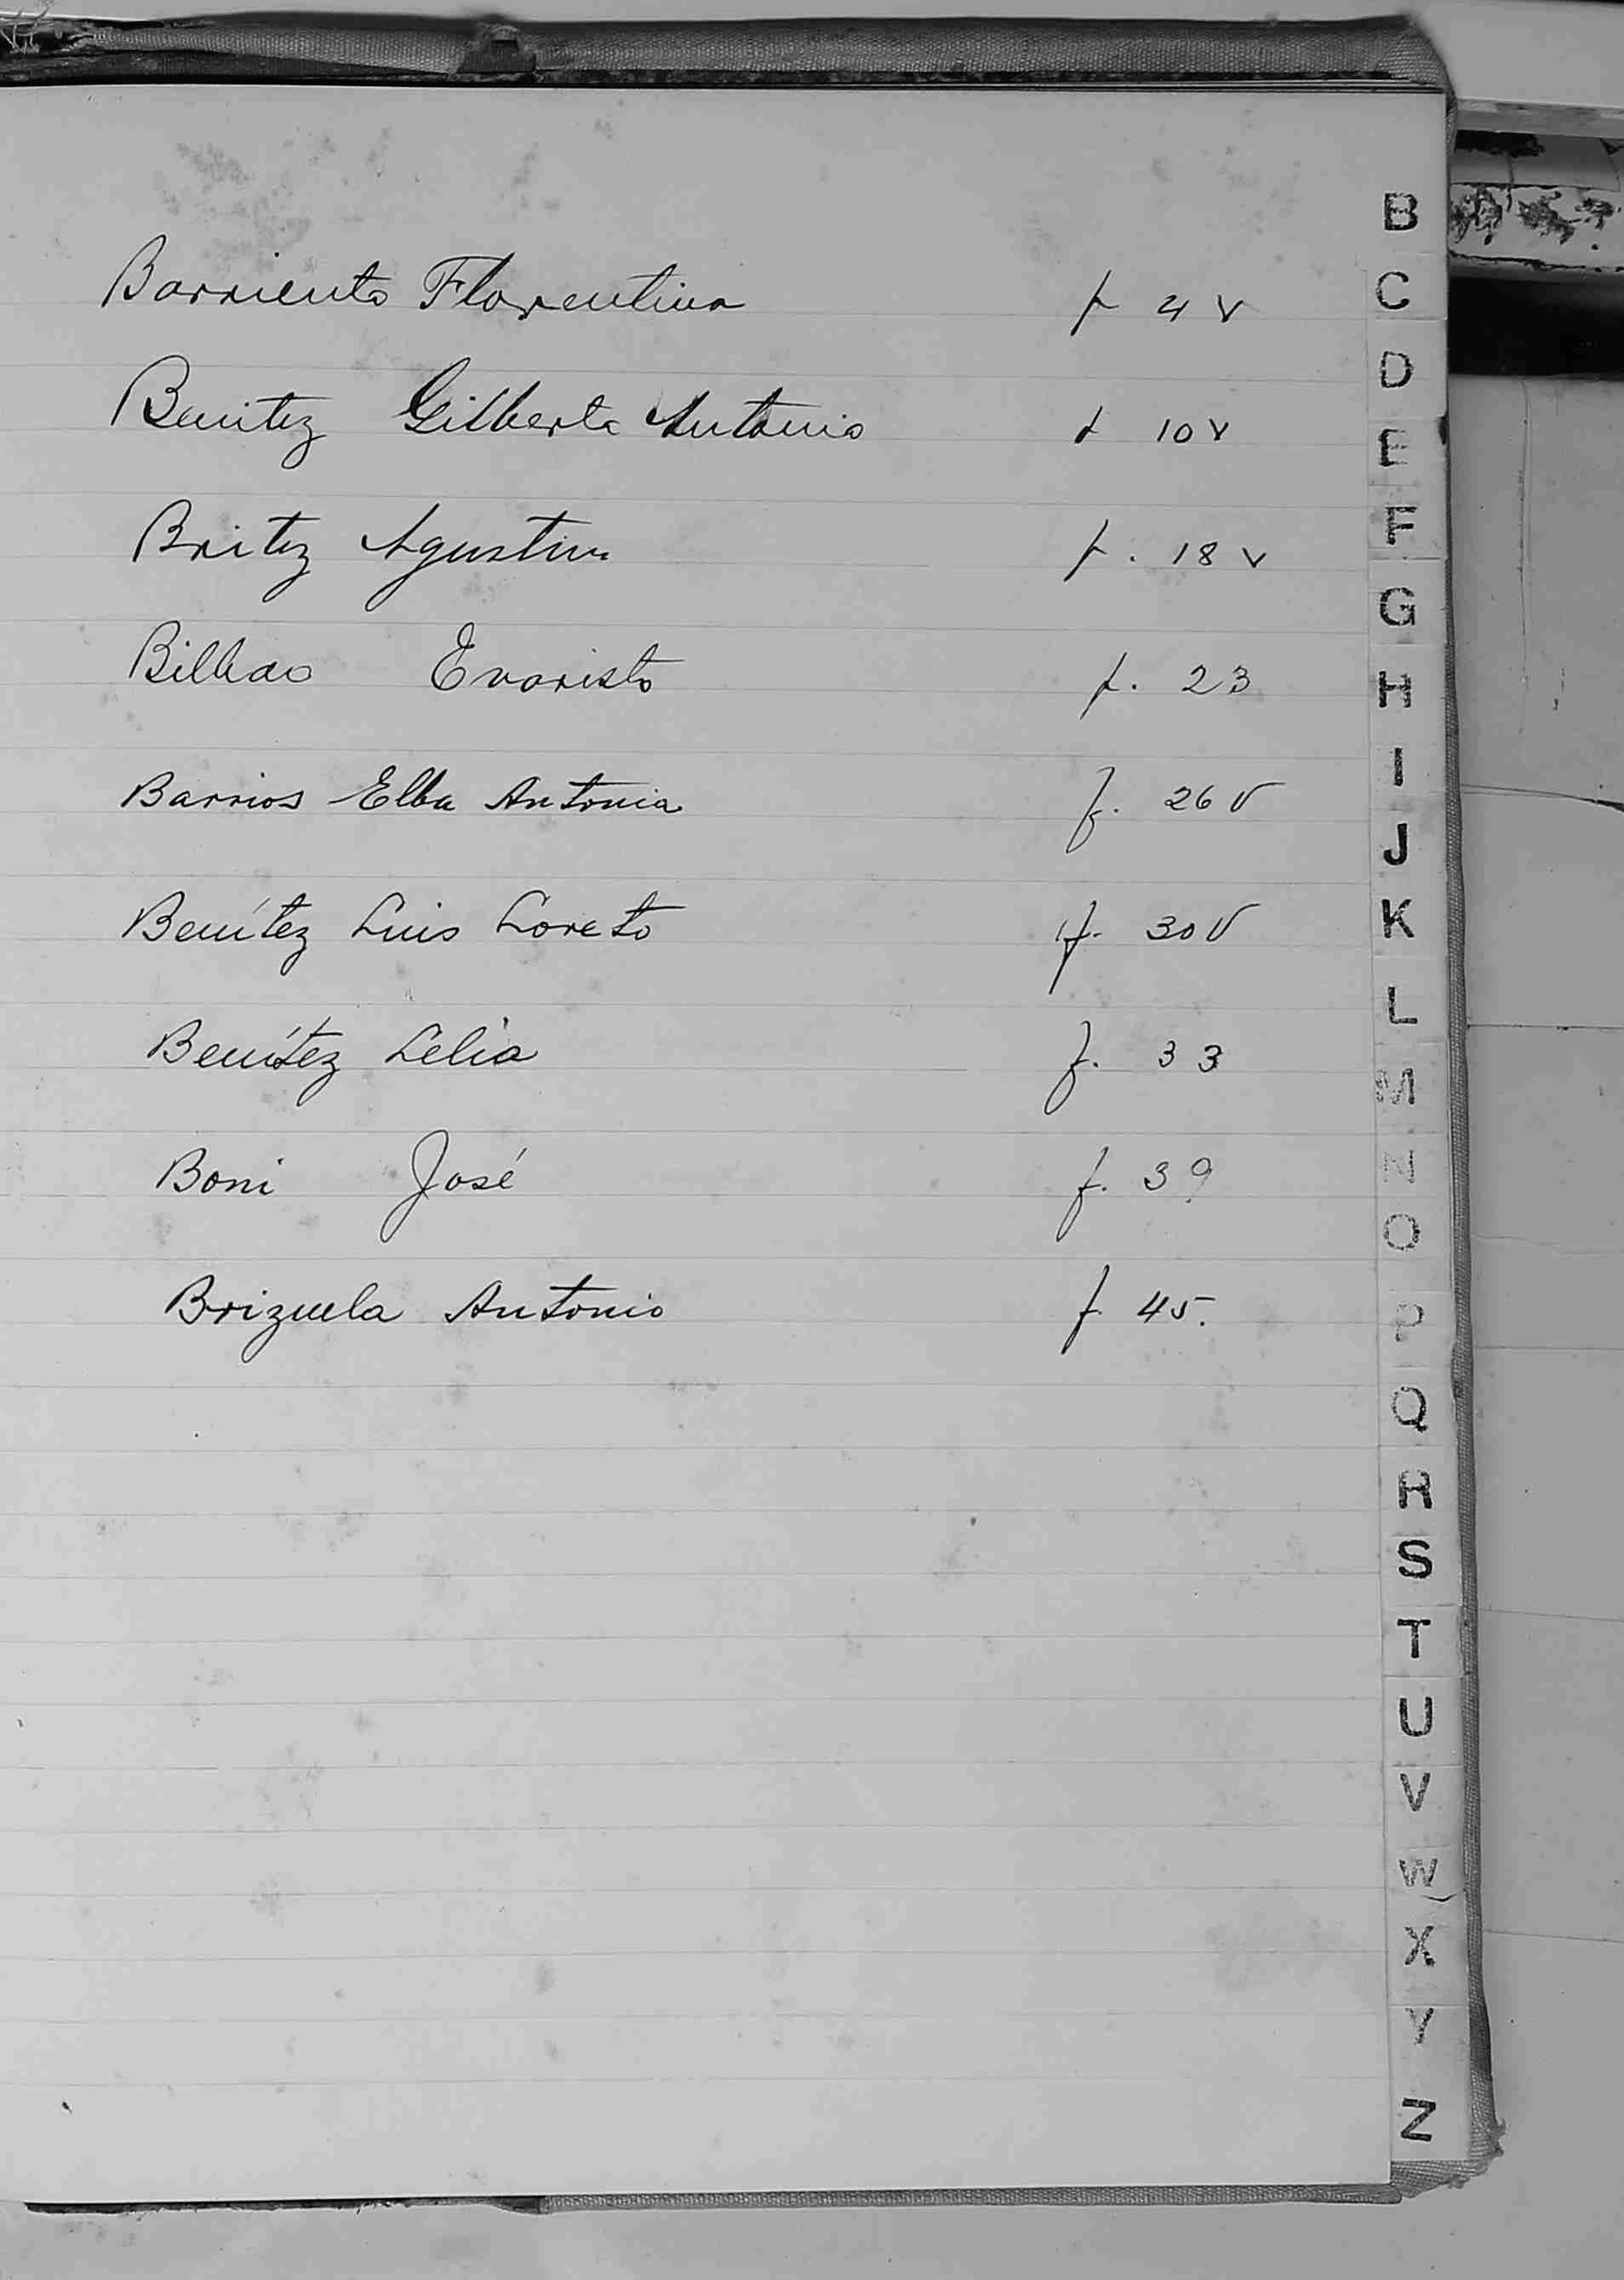 B
Barriento Florentina f 4 v
C
D
Benitez Gilberto Antonio f 10 v
E
F
Britez Agustin f. 18 v
G
Bilbao Evaristo f. 23
H
I
Barrios Elba Antonia f. 26 V
J
K
Benítez Luis Loreto f. 30 V
L
Benítez Celia f. 33
M
N
Boni José f. 39
O
Brizuela Antonio f 45.
P
Q
R
S
T
U
V
W
X
Y
Z